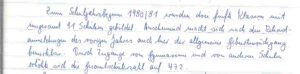 Zum Schuljahrsbeginn 1980/81 wurden drei fünfte Klassen mit
insgesamt 91 Schülern gebildet. Erschwerend macht sich nach den Rekord-
anmeldungen des vorigen Jahres auch hier der allgemeine Geburtenrückgang
bemerkbar. Durch Zugänge von Gymnasien und von anderen Schulen
erhöht sich die Gesamtschülerzahl auf 472